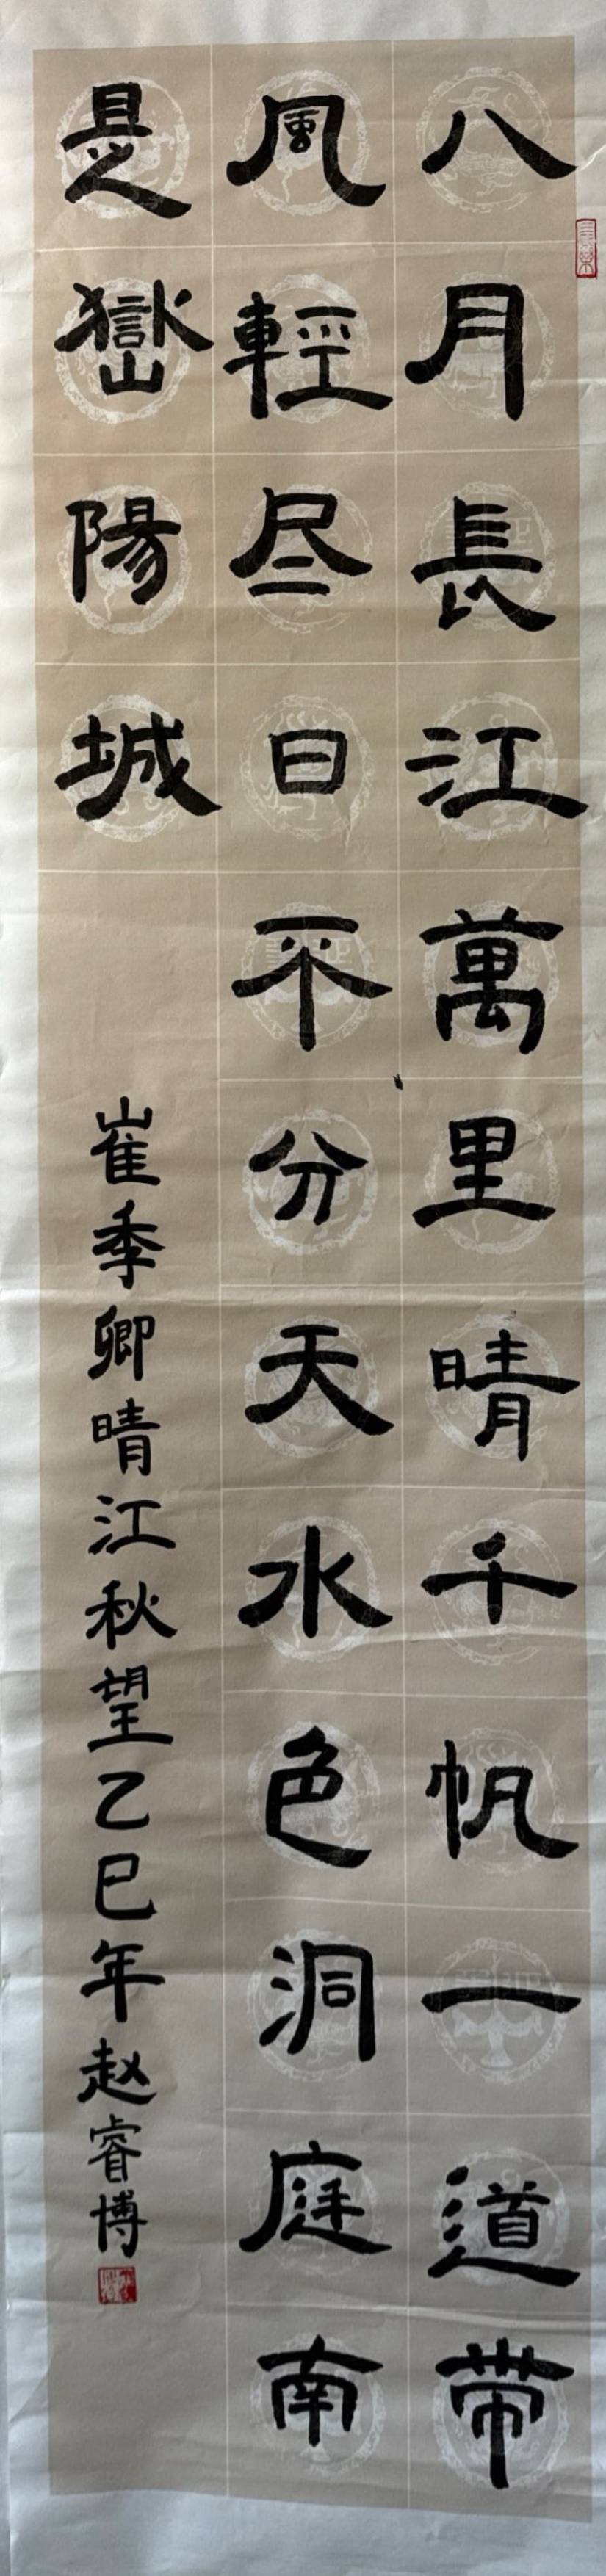 八月長江萬里晴千帆一道帶
風輕尽日不分天水色洞庭南
是嶽陽城
崔季卿晴江秋望乙巳年赵睿博